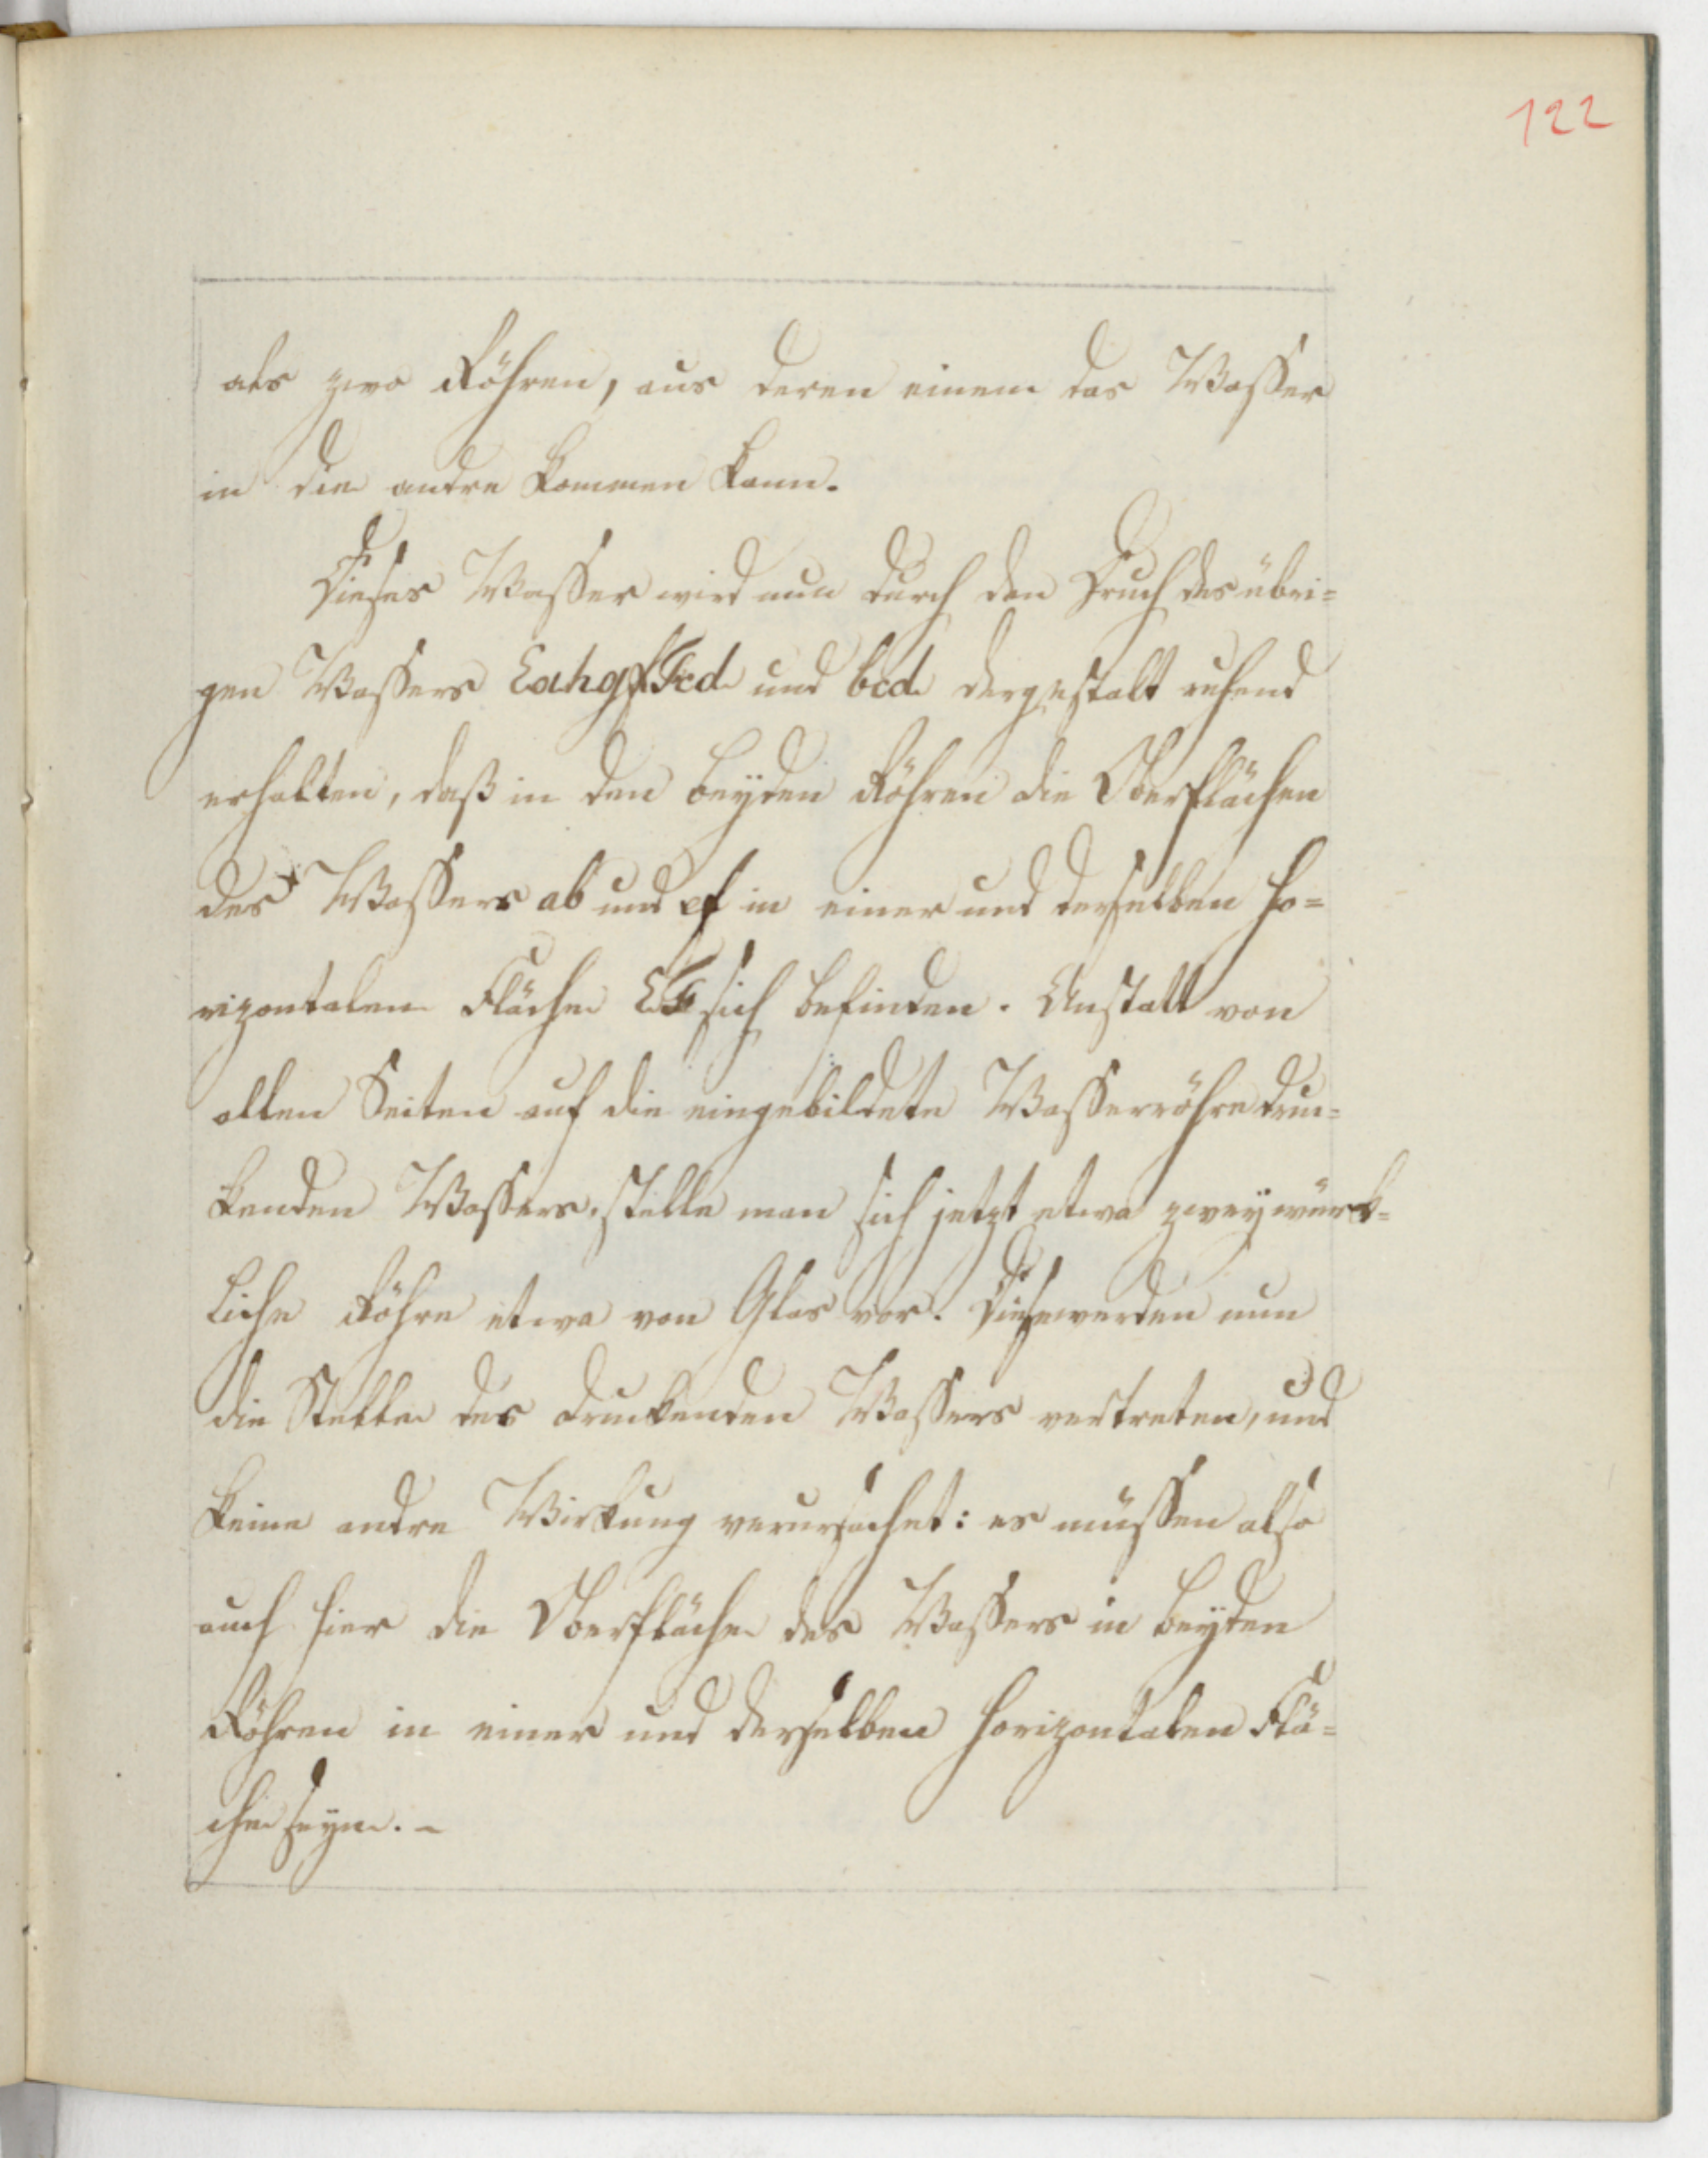 122
als zwo Röhren, aus deren einem das Waßer
in die andre kommen kann.
Dieses Waßer wird nun durch den Druck des übri=
gen Waßers EahgfFcd und bcd dergestalt ruhend
erhalten, daß in den beyden Röhren die Oberflächen
des Waßers ab und ef in einer und derselben ho=
rizontalen Fläche EF sich befinden. Anstatt von
allen Seiten auf die eingebildete Waßerröhre druc=
kenden Waßers. stelle man sich jetzt etwa zwey würk=
liche Röhre etwa von Glas vor. Diese werden nun
die Stelle des druckenden Waßers vertreten, und
keine andre Wirkung verursachet: es müßen also
auch hier die Oberfläche des Waßers in beyden
Röhren in einer und derselben horizontalen Flä=
che seyn. -